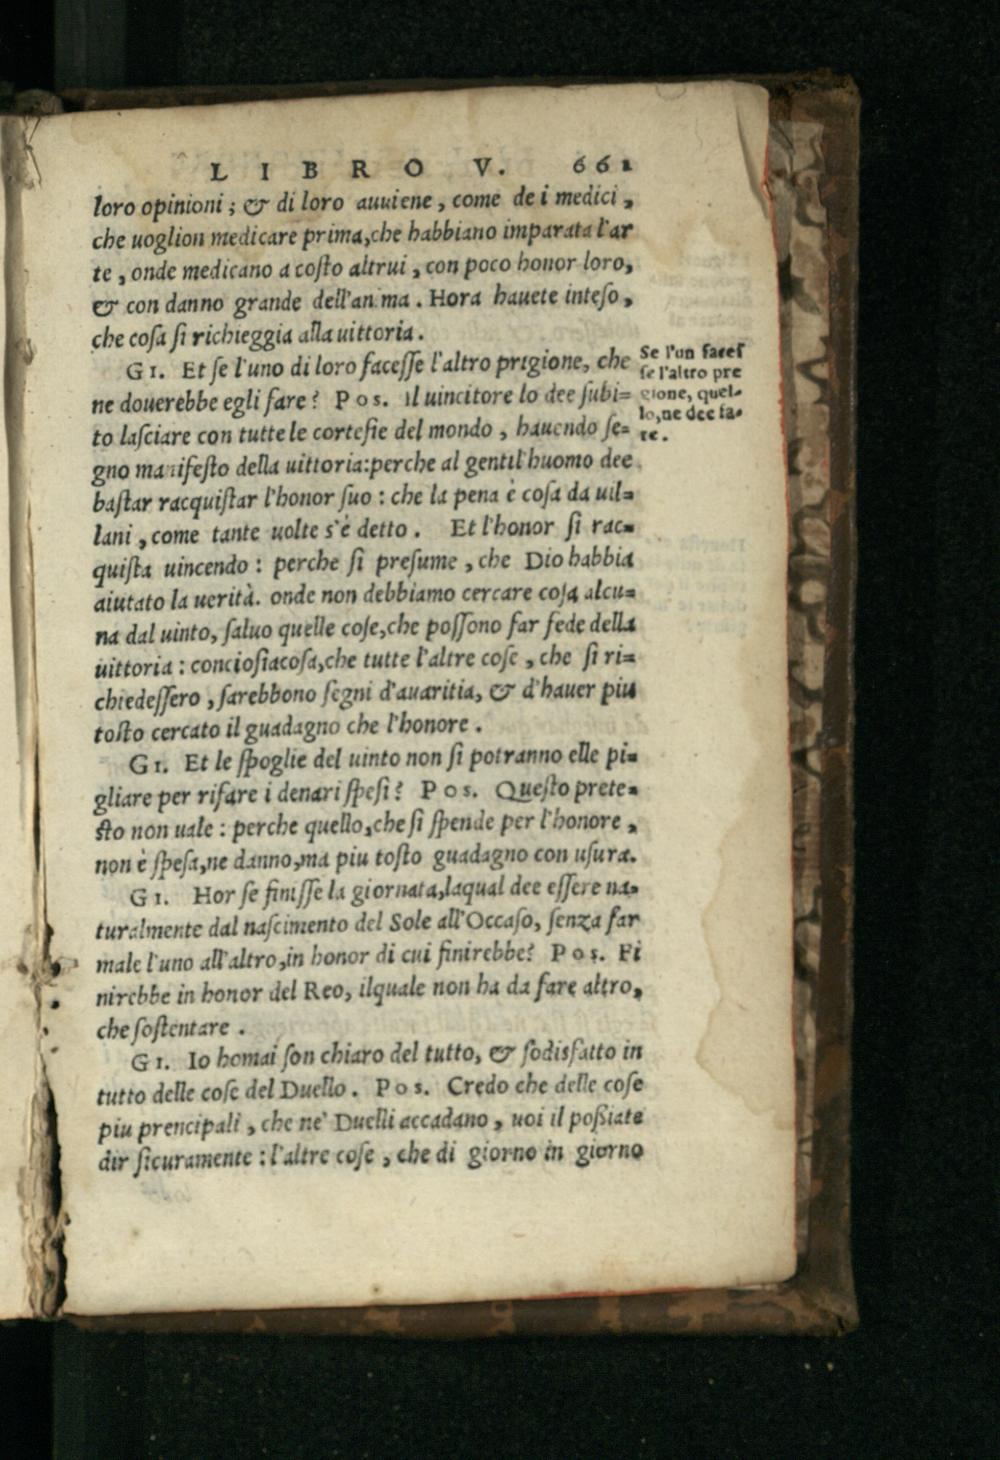 LIBRO V. 661
loro opinioni ; & di loro auuiene , come de i medici ,
che uoglion medicare prima,che habbiano imparata l'ar
te , onde medicano a coſto altrui , con poco honor loro,
& con danno grande dell'anima . Hora hauete inteſo ,
che coſa ſi richieggia alla uittoria .
GI. Et ſe l'uno di loro faceſſe l'altro prigione, che
ne douerebbe egli fare? Pos. il uincitore lo dee ſubi=
to laſciare con tutte le corteſie del mondo , hauendo ſe=
gno manifeſto della uittoria:perche al gentil'huomo dee
baſtar racquiſtar l'honor ſuo : che la pena è coſa da uil=
lani , come tante uolte s'è detto . Et l'honor ſi rac=
quiſta uincendo : perche ſi preſume , che Dio habbia
aiutato la uerità. onde non debbiamo cercare coſa alcu=
na dal uinto, ſaluo quelle coſe,che poſſono far fede della
uittoria : concioſiacoſa,che tutte l'altre coſe , che ſi ri=
chiedeſſero , ſarebbono ſegni d'auaritia, & d'hauer piu
toſto cercato il guadagno che l'honore .
GI. Et le ſpoglie del uinto non ſi potranno elle pi=
gliare per rifare i denari ſpeſi? Pos. Queſto prete=
ſto non uale : perche quello,che ſi ſpende per l'honore ,
non è ſpeſa,ne danno,ma piu toſto guadagno con uſura.
GI. Hor ſe finiſſe la giornata,laqual dee eſſere na=
turalmente dal naſcimento del Sole all'Occaſo, ſenza far
male l'uno all'altro,in honor di cui finirebbe? Pos. Fi
nirebbe in honor del Reo, ilquale non ha da fare altro,
che ſoſtentare .
GI. Io homai ſon chiaro del tutto, & ſodisfatto in
tutto delle coſe del Duello . Pos. Credo che delle coſe
piu prencipali , che ne' Duelli accadano , uoi il poßiate
dir ſicuramente : l'altre coſe , che di giorno in giorno
Se l'un faceſ
ſe l'altro pre
gione, quel=
lo,ne dee fa=
re .